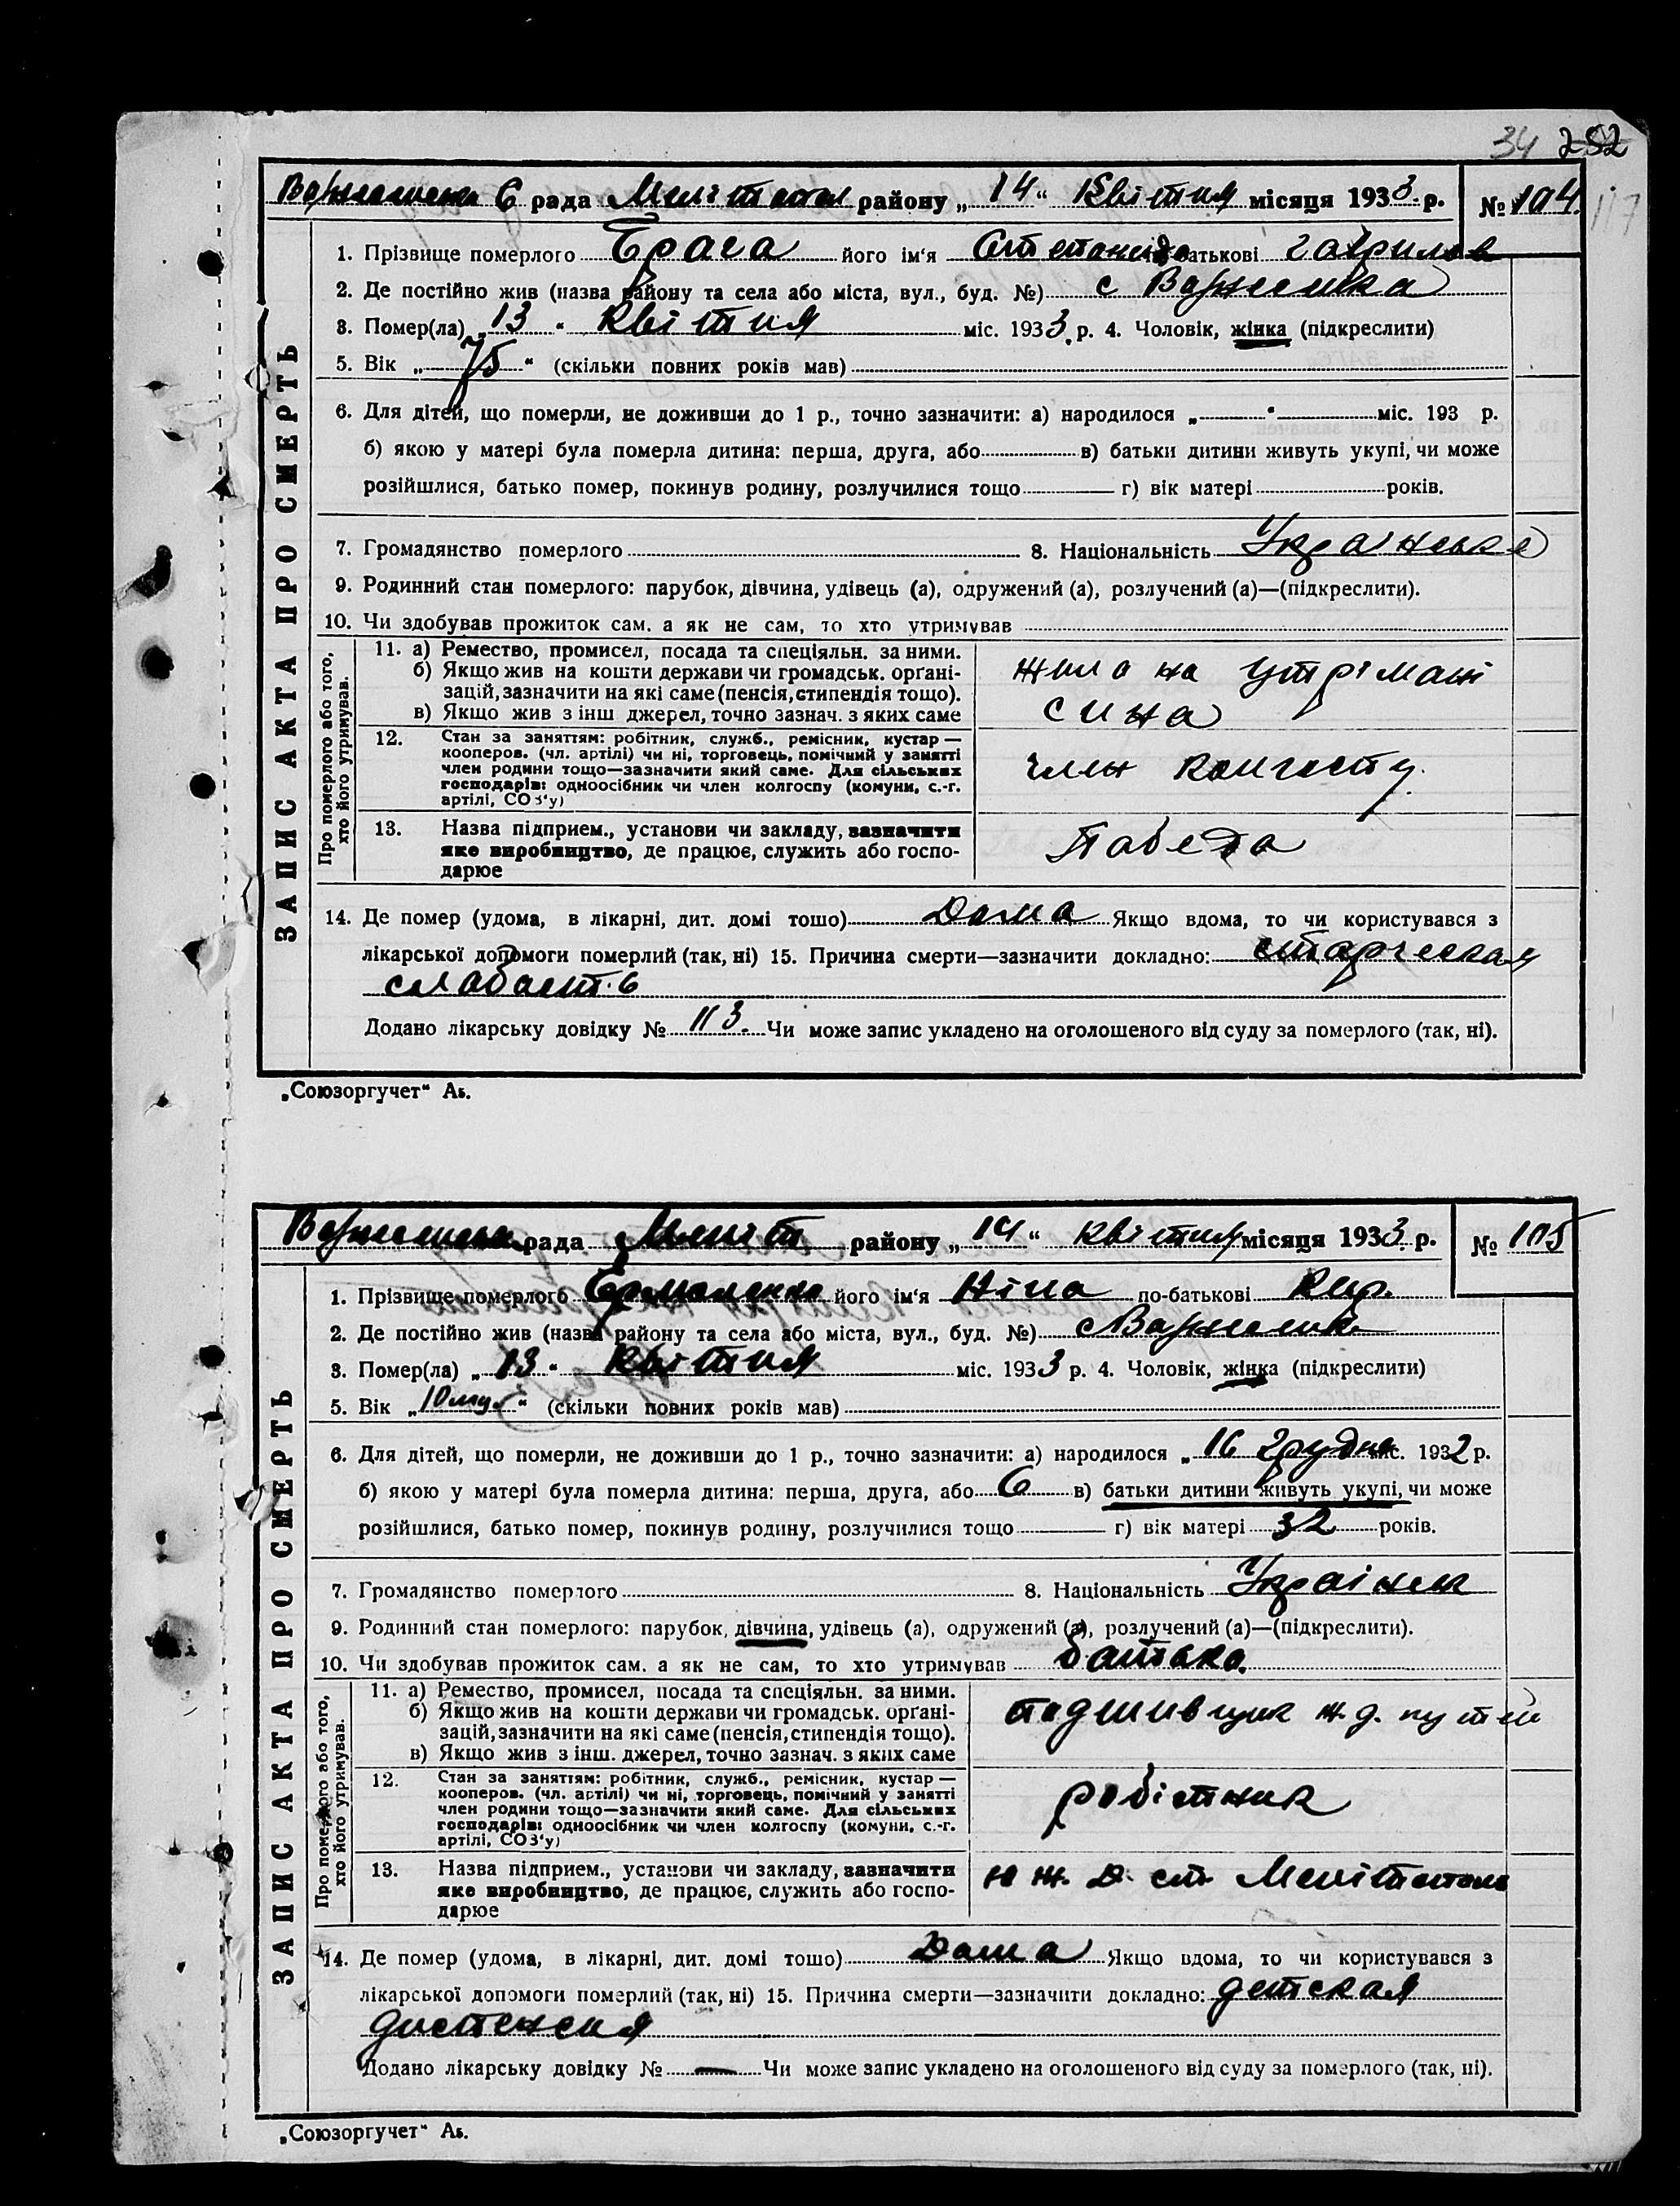 34 252
рада Мелітопол району „14“ Квітня місяця 1933 р. № 104. 117
1. Прізвище померлого Ерага його ім‘я Степанида батькові Гаврилов
2. Де постійно жив (назва району та села або міста, вул., буд. №) с
3. Помер(ла) „13“ Квітня міс. 1933 р. 4. Чоловік, жінка (підкреслити)
5. Вік „75“ (скільки повних років мав)
6. Для дітей, що померли, не доживши до 1 р., точно зазначити: а) народилося „ “ міс. 193 р.
б) якою у матері була померла дитина: перша, друга, або в) батьки дитини живуть укупі, чи може
розійшлися, батько помер, покинув родину, розлучилися тощо г) вік матері років.
7. Громадянство померлого 8. Національність Українська
9. Родинний стан померлого: парубок, дівчина, удівець (а), одружений (а), розлучений (а)—(підкреслити).
10. Чи здобував прожиток сам, а як не сам, то хто утримував
ЗАПИС АКТА ПРО СМЕРТЬ
Про померлого або того,
хто його утримував.
11. а) Ремество, промисел, посада та спеціяльн. за ними.
б) Якщо жив на кошти держави чи громадськ. орґані-
зацій, зазначити на які саме (пенсія, стипендія тощо).
в) Якщо жив з інш джерел, точно зазнач. з яких саме
жила на утрімані
сина
12. Стан за заняттям: робітник, служб., ремісник, кустар —
кооперов. (чл. артілі) чи ні, торговець, помічний у занятті
член родини тощо—зазначити який саме. Для сільських
господарів: одноосібник чи член колгоспу (комуни, с.-г.
артілі, СОЗ‘у)
член колгоспу.
13. Назва підприєм., установи чи закладу, зазначити
яке виробництво, де працює, служить або госпо-
дарює
Победа
14. Де помер (удома, в лікарні, дит. домі тощо) Дома Якщо вдома, то чи користувався з
лікарської допомоги померлий (так, ні) 15. Причина смерти—зазначити докладно: старческая
слабость
Додано лікарську довідку № 113. Чи може запис укладено на оголошеного від суду за померлого (так, ні).
„Союзоргучет“ Аь.
рада Меліт району „14“ квітня місяця 1933 р. № 105
1. Прізвище померлого Ермоленко його ім‘я Ніна по-батькові Кир.
2. Де постійно жив (назва району та села або міста, вул., буд. №) с
3. Помер(ла) „13“ Квітня міс. 1933 р. 4. Чоловік, жінка (підкреслити)
5. Вік „ “ (скільки повних років мав)
6. Для дітей, що померли, не доживши до 1 р., точно зазначити: а) народилося „16 грудня міс. 1932 р.
б) якою у матері була померла дитина: перша, друга, або 6 в) батьки дитини живуть укупі, чи може
розійшлися, батько помер, покинув родину, розлучилися тощо г) вік матері 32 років.
7. Громадянство померлого 8. Національність Українк
9. Родинний стан померлого: парубок, дівчина, удівець (а), одружений (а), розлучений (а)—(підкреслити).
10. Чи здобував прожиток сам, а як не сам, то хто утримував батько.
ЗАПИС АКТА ПРО СМЕРТЬ
Про померлого або того,
хто його утримував.
11. а) Ремество, промисел, посада та спеціяльн. за ними.
б) Якщо жив на кошти держави чи громадськ. орґані-
зацій, зазначити на які саме (пенсія, стипендія тощо).
в) Якщо жив з інш. джерел, точно зазнач. з яких саме
подшивщик ж.д. путей
12. Стан за заняттям: робітник, служб., ремісник, кустар —
кооперов. (чл. артілі) чи ні, торговець, помічний у занятті
член родини тощо—зазначити який саме. Для сільських
господарів: одноосібник чи член колгоспу (комуни, с.-г.
артілі, СОЗ‘у)
робітник
13. Назва підприєм., установи чи закладу, зазначити
яке виробництво, де працює, служить або госпо-
дарює
Ю ж. д. ст. Мелітополь
14. Де помер (удома, в лікарні, дит. домі тощо) Дома Якщо вдома, то чи користувався з
лікарської допомоги померлий (так, ні) 15. Причина смерти—зазначити докладно: детская
диспенсия
Додано лікарську довідку № — Чи може запис укладено на оголошеного від суду за померлого (так, ні).
„Союзоргучет“ Аь.